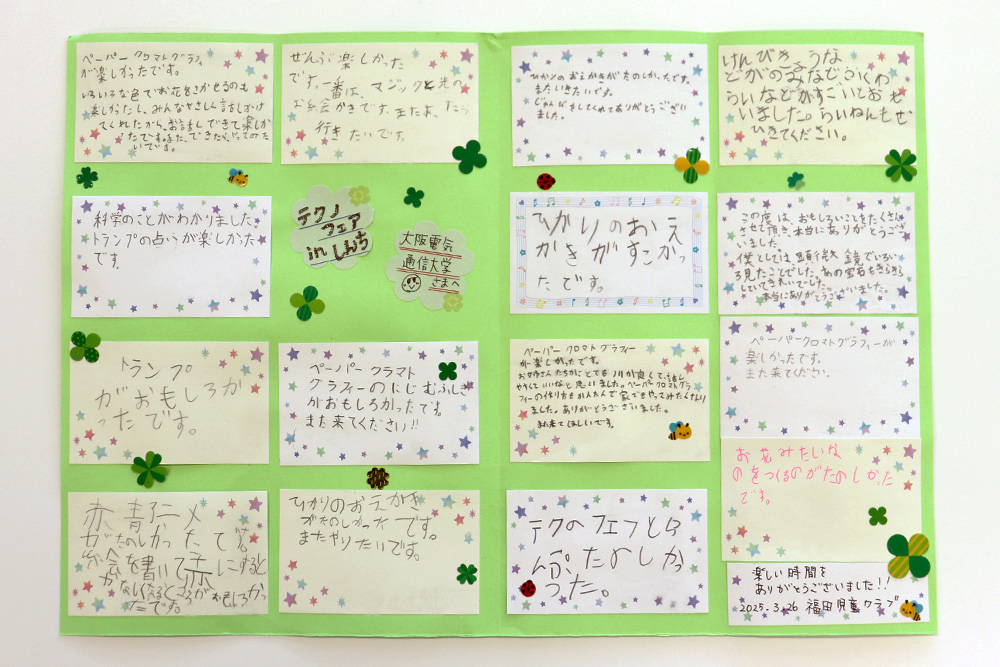 ペーパークロマトグラフィー
が楽しかったです。
いろいろな色でお花をさかせるのも
楽しかったし、みんなやさしく話しかけ
てくれたから、お話しできて楽しか
ったです。また、できたら、やってみた
いです。
ぜんぶ楽しかった
です。一番は、マジックと光の
お絵会かきです。またよ、たら
行き たいです。
ひかりのおえかきがたのしかったです。
またいきたいです。
じゅんびをしてくれてありがとうござい
ました。
けんびきょうな
どがのみなどふくわ
らいなどがすごいとおも
いました。らいねんもぜ
ひきてください。
科学のことがわかりました
トランプの占うが楽しかった
です。
テクノ
フェア
inしんち
大阪電気
通信大学
さまへ
ひかりのおえ
かきがすごかっ
たです。
この度は、おもしろいことをたくさん
させて頂き、本当にありがとうござ
いました。
僕としては、顕微鏡でいろい
ろ見たことでした。あの宝石もきらきら
していてきれいでした。
本当にありがとうございました。
トランプ
がおもしろか
ったです。
ペーパークラマト
グラフィーのにじむふしぎ
がおもしろかったです。
また来てください!!
ペーパークロマトグラフィー
が楽しかったです。
お姉さんたちが、とても仲が良くて、話し
やすくていいなと思いました。ペーパークロマトグラ
フィーの作り方もかんたんで家でもやってみたくなり
ました。ありがとうございました。
また来てほしいです。
ペーパークロマトグラフィーが
楽しかったです。
また来てください。
お花みたいな
のをつくるのがたのしかった
です。
赤青アニメ
がたのしかったです。
絵を書いて赤にすると
かがなくなるところがおもしろかっ
たです。
ひかりのおえがき
がたのしかったです。
またやりたいです。
テクのフェフとら
んぷ、たのしかっ
った。
楽しい時間を
ありがとうございました!!
2025.3.26 福田児童クラブ